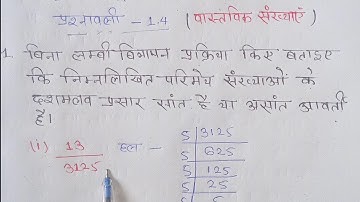 प्रश्नावली - 1.4 (वास्तविक संख्याएं)
1. बिना लम्बी विभाजन प्रक्रिया किए बताइए
कि निम्नलिखित परिमेय संख्याओं के
दशमलव प्रसार सांत हैं या असांत आवर्ती
हैं।
(i) 13/3125 हल - 5 | 3125
5 | 625
5 | 125
5 | 25
5